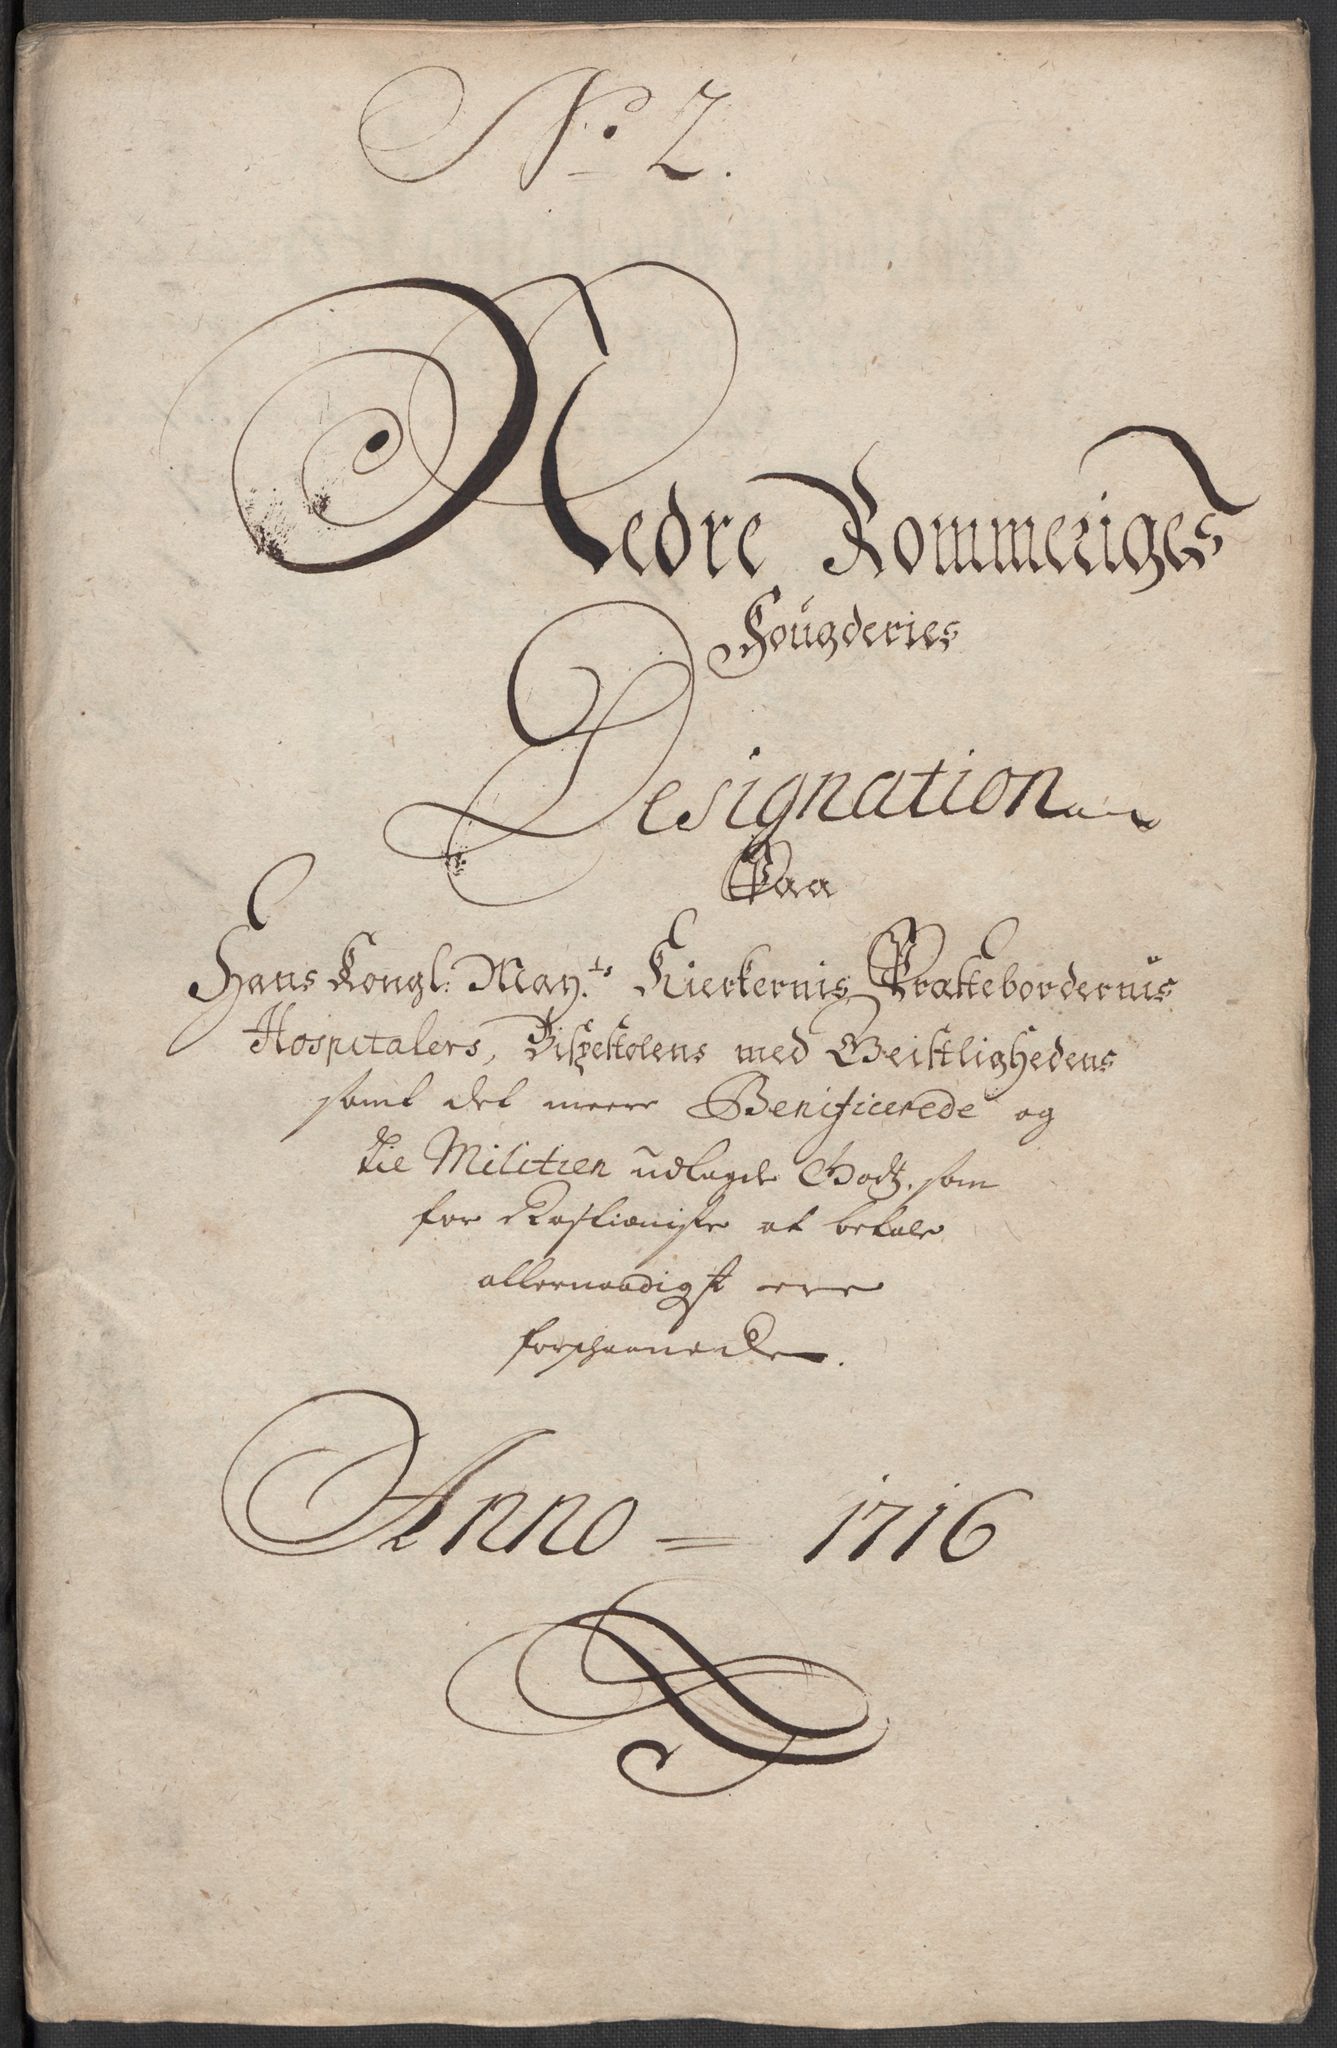 No 2.
Nedre Rommeriges
Fougderies
Designation
Paa
Hans Kongl: May.ts Kierkernis, Præstebordernis
Hospitalers, Bispestolens med Geistlighedens
samt det meere Benificerede og
til Militien udlagde Godtz, som
for Rostieniste at betale
allernaadigst ere
forschaanede.
Anno = 1716